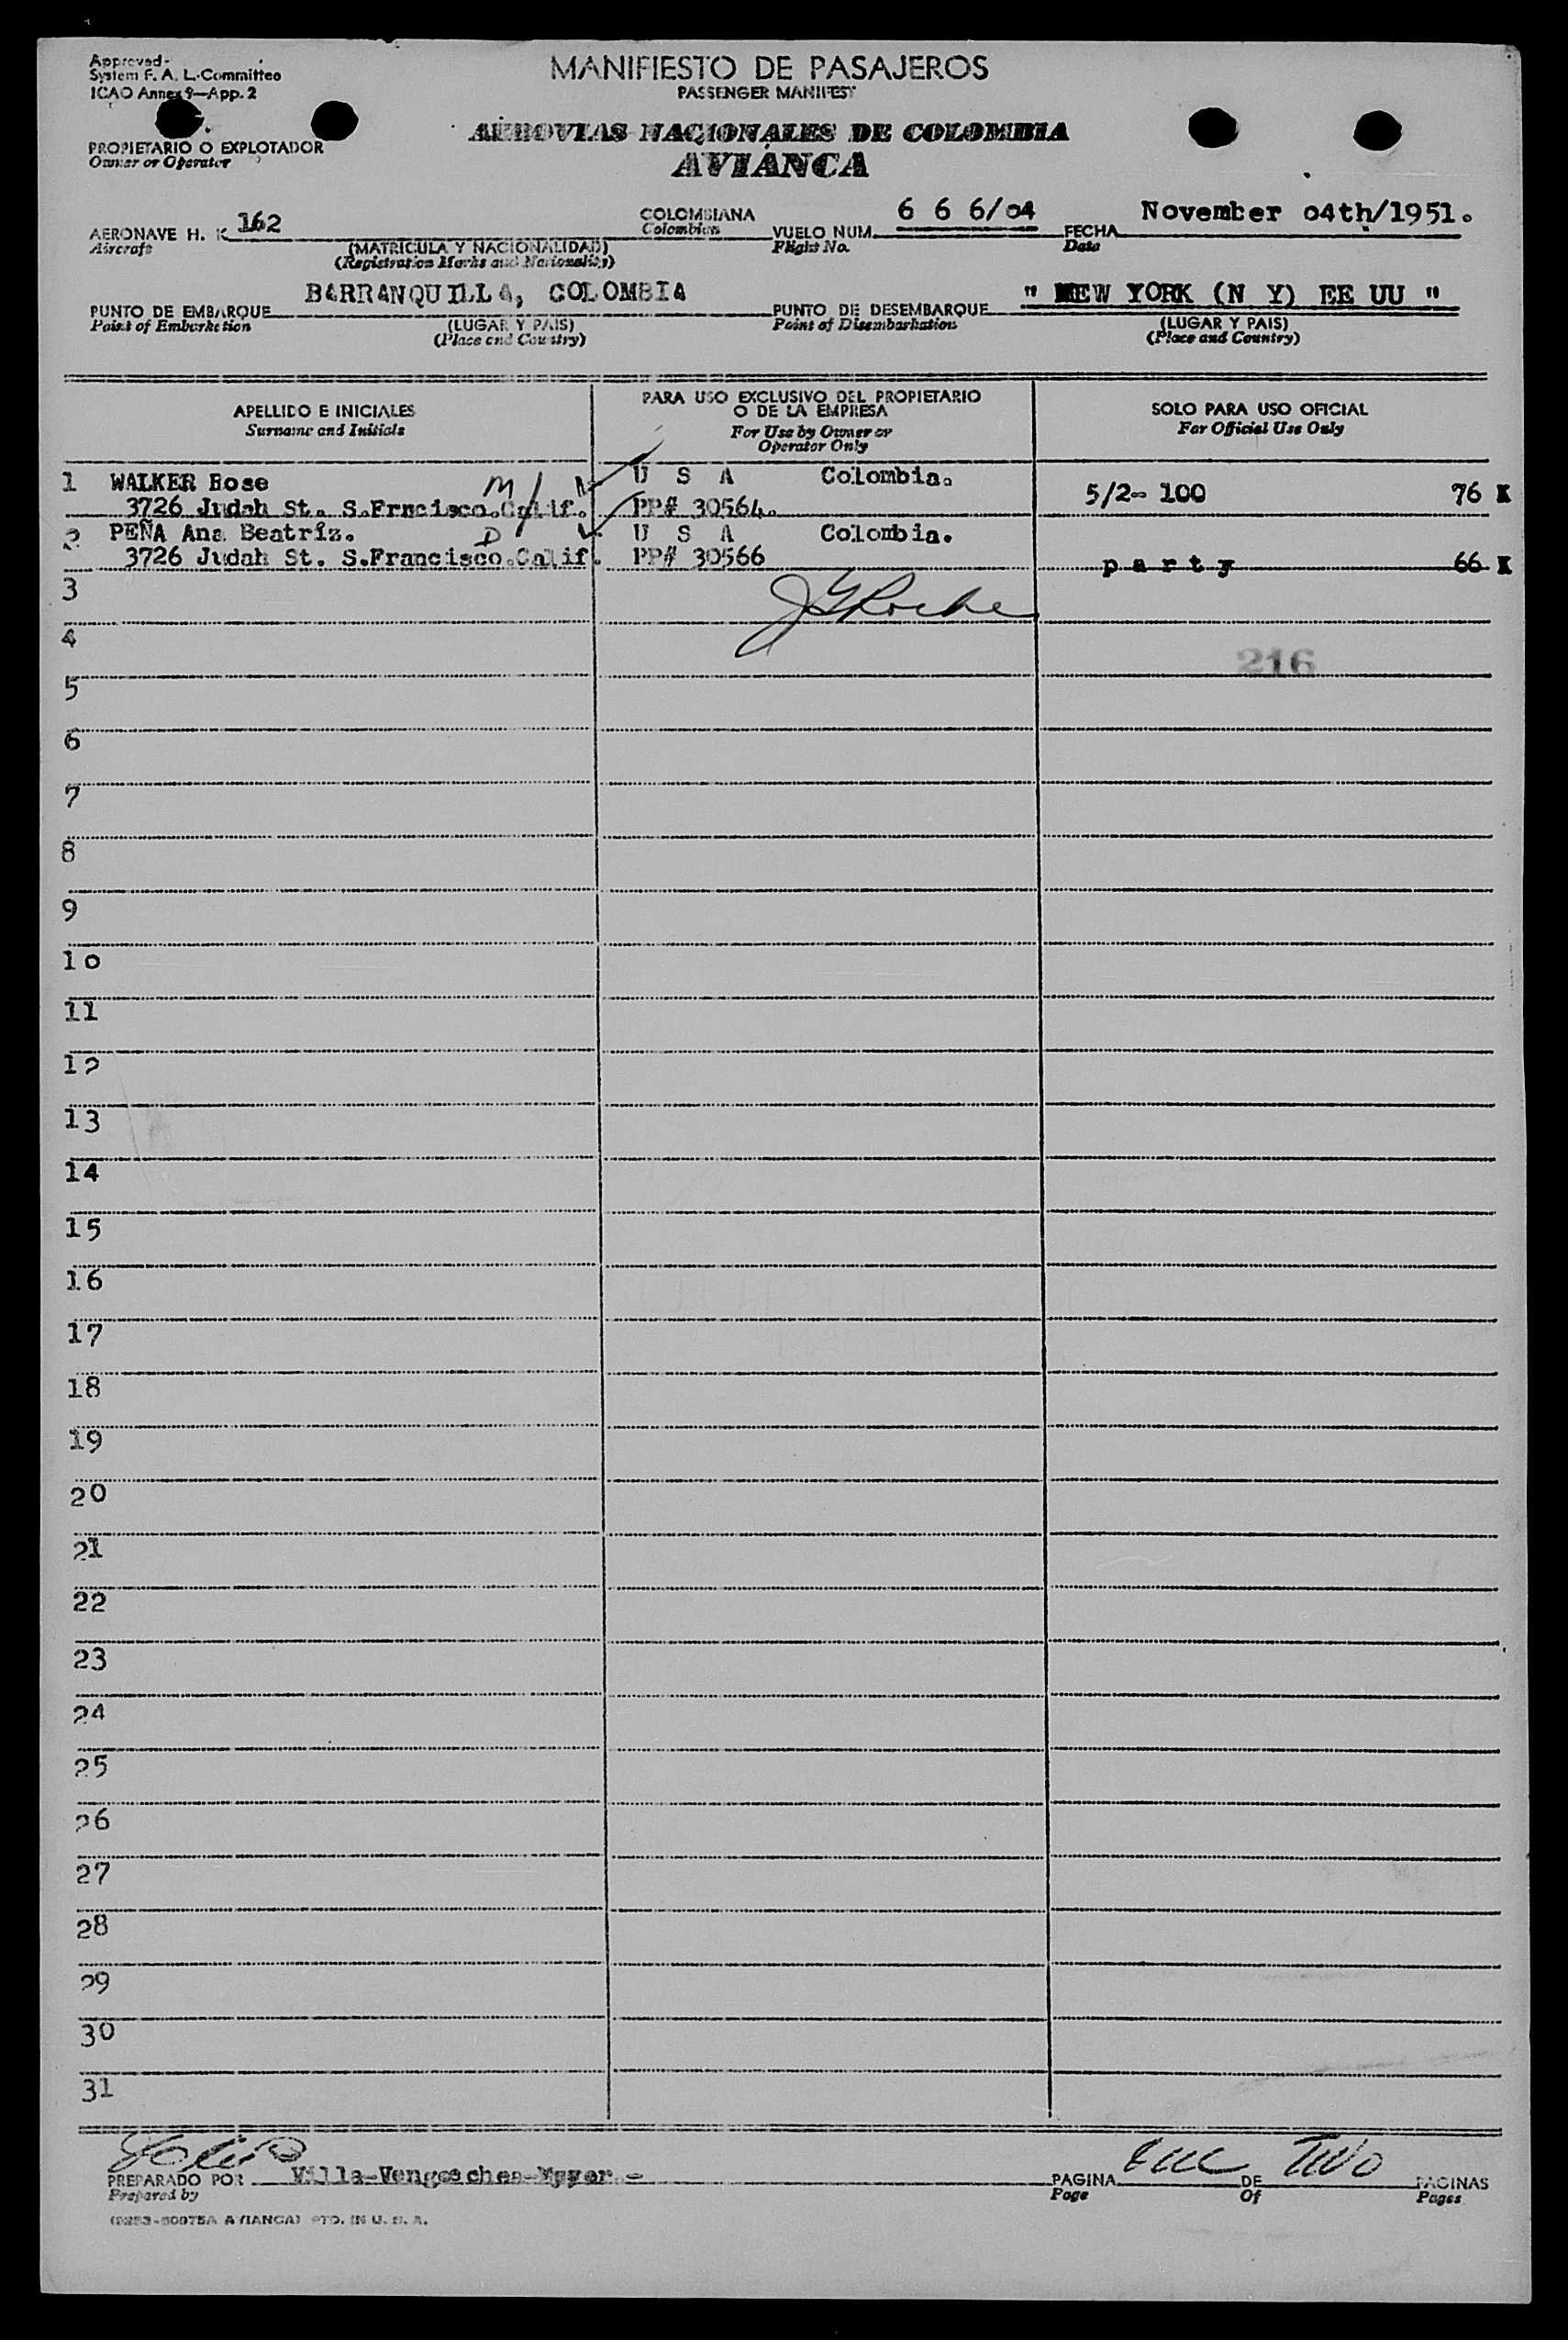 Approved-
System F. A. L.-Committee
ICAO Annex 9—App. 2
MANIFIESTO DE PASAJEROS
PASSENGER MANIFEST
PROPIETARIO O EXPLOTADOR
Owner or Operator
AEROVIAS NACIONALES DE COLOMBIA
AVIANCA
AERONAVE H. K 162 COLOMBIANA VUELO NUM. 6 6 6/04 FECHA November 04th/1951.
Aircraft (MATRICULA Y NACIONALIDAD) Colombian Flight No. Date
(Registration Marks and Nationality)
PUNTO DE EMBARQUE BARRANQUILLA, COLOMBIA PUNTO DE DESEMBARQUE " NEW YORK (N Y) EE UU "
Point of Embarkation (LUGAR Y PAIS) Point of Disembarkation (LUGAR Y PAIS)
(Place and Country) (Place and Country)
APELLIDO E INICIALES PARA USO EXCLUSIVO DEL PROPIETARIO O DE LA EMPRESA SOLO PARA USO OFICIAL
Surname and Initials For Use by Owner or Operator Only For Official Use Only
1 WALKER Rose M U S A Colombia.
3726 Judah St. S.Frncisco.Calif. PP# 30564. 5/2- 100 76 K
2 PEÑA Ana Beatríz. D U S A Colombia.
3726 Judah St. S.Francisco.Calif. PP# 30566 p a r t y 66 K
3
4 216
5
6
7
8
9
10
11
12
13
14
15
16
17
18
19
20
21
22
23
24
25
26
27
28
29
30
31
PREPARADO POR Villa-Vengoechea-Myyer.- PAGINA DE Two PAGINAS
Prepared by Page Of Pages
AVIANCA) PTD. IN U. S. A.